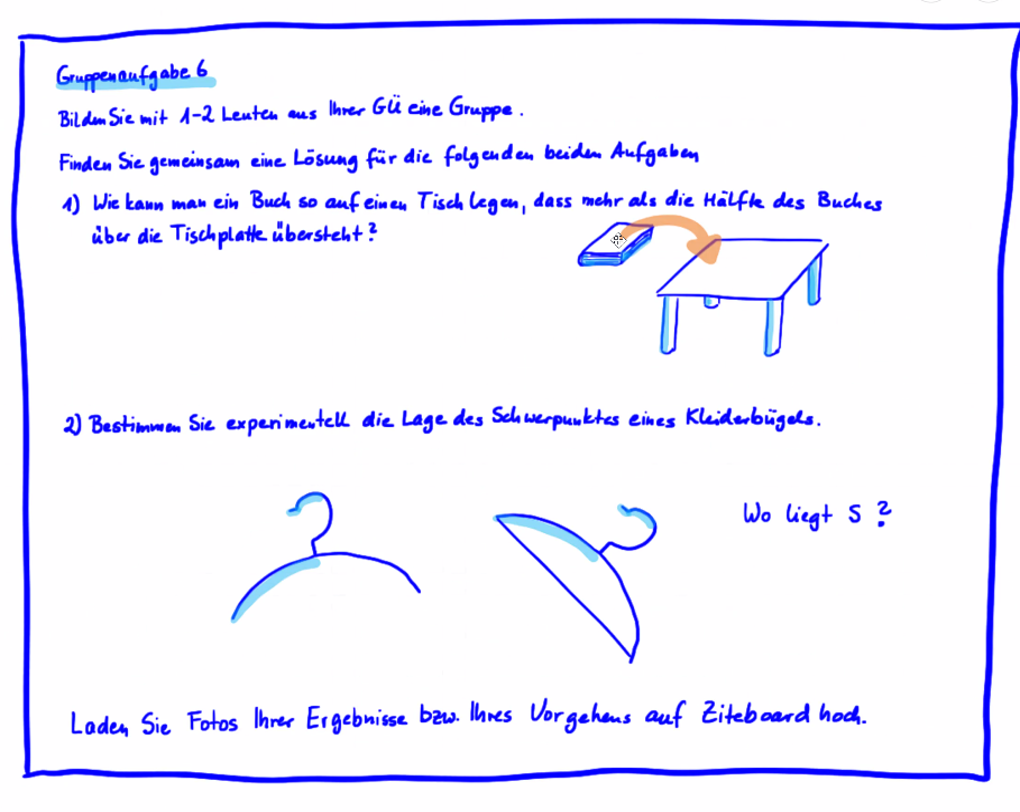 Gruppenaufgabe 6
Bilden Sie mit 1-2 Leuten aus Ihrer GÜ eine Gruppe.
Finden Sie gemeinsam eine Lösung für die folgenden beiden Aufgaben
1) Wie kann man ein Buch so auf einen Tisch legen, dass mehr als die Hälfte des Buches
über die Tischplatte übersteht?
2) Bestimmen Sie experimentell die Lage des Schwerpunktes eines Kleiderbügels.
Wo liegt S?
Laden Sie Fotos Ihrer Ergebnisse bzw. Ihres Vorgehens auf Ziteboard hoch.